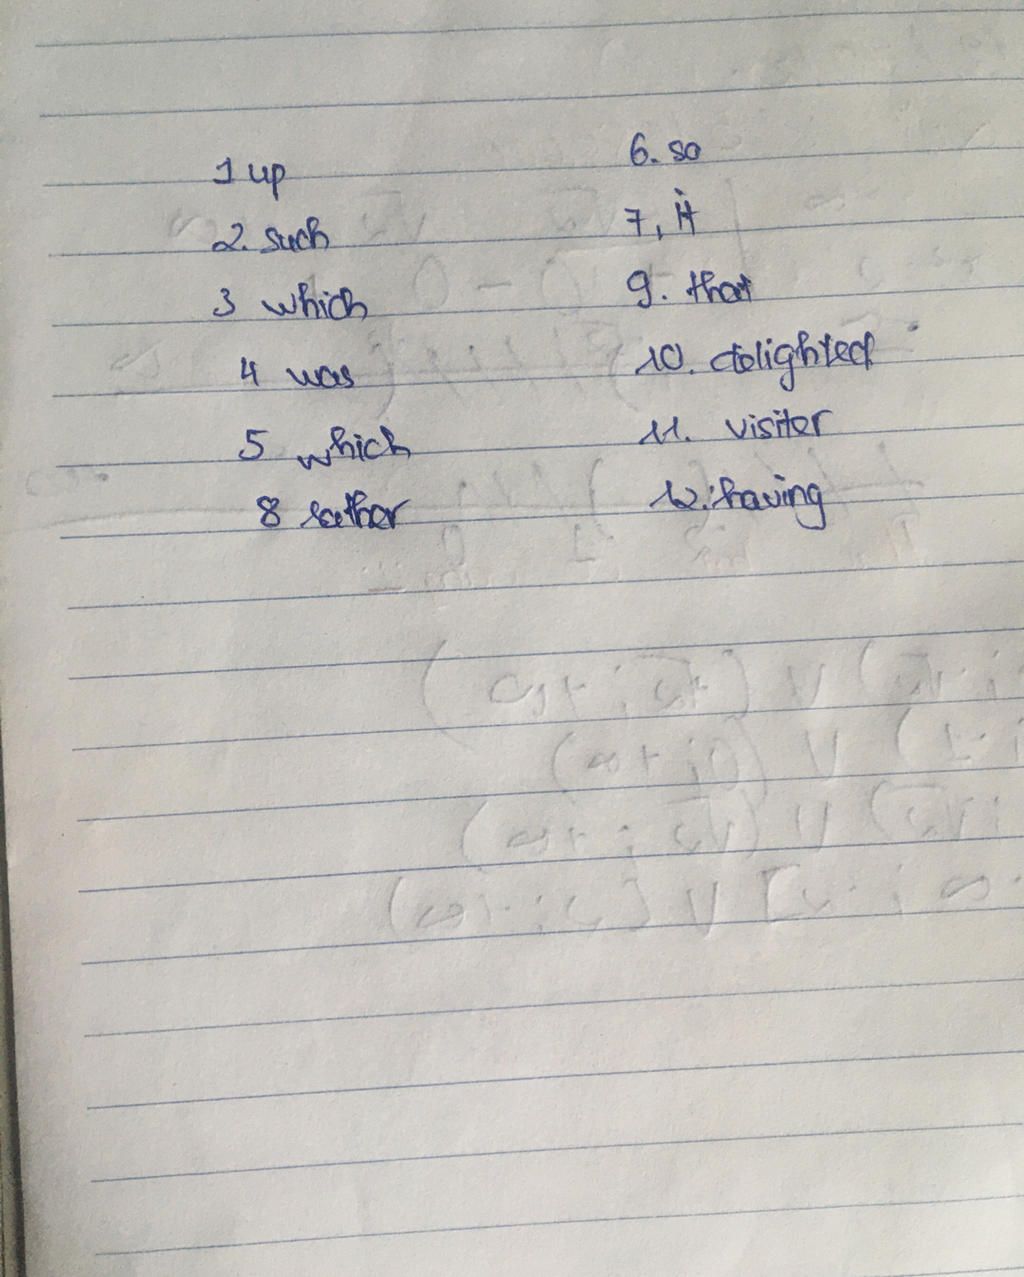 1 up
2. such
3 which
4 was
5 which
8 rather
6. so
7, it
9. that
10. delighted
11. visiter
12. having